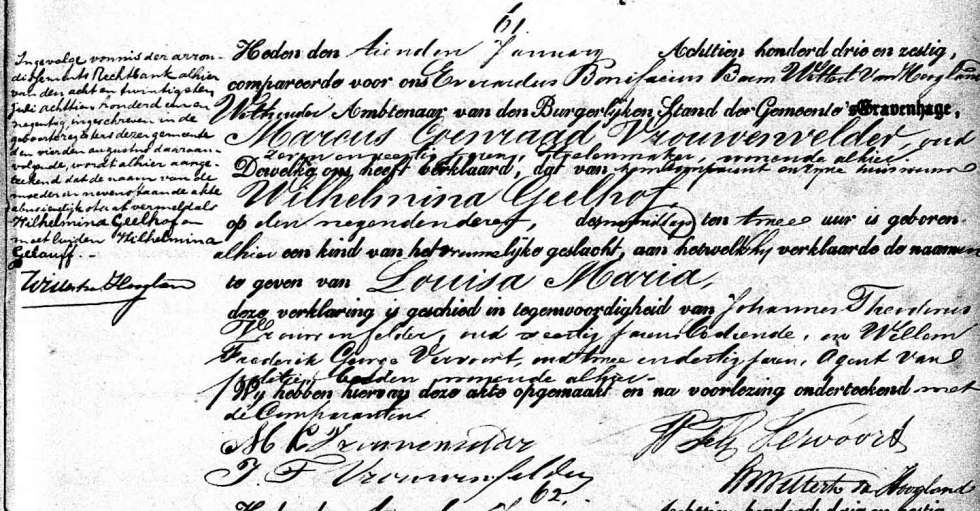 61.
Ingevolge vonnis der arron-
dissements Rechtbank alhier
van den acht en twintigsten
Juli achttien honderd een en
negentig ingeschreven in de
geboorteregisters dezer gemeente
den vierden augustus daaraan-
volgende, wordt alhier aange-
teekend dat de naam van de
moeder in nevenstaande akte
abusievelijk staat vermeld als
Wilhelmina Geelhof en
moet luiden Wilhelmina
Gelauff.-
Heden den tienden January Achttien honderd drie en zestig,
compareerde voor ons Everardus Bonifacius Wittert van Hoogland
Wethouder Ambtenaar van den Burgerlijken Stand der Gemeente 's Gravenhage,
Marcus Coenraad Vrouwenvelder, oud
jaren, wonende alhier.
Dewelke ons heeft verklaard, dat van hem comparant en zijne huisvrouw
Wilhelmina Geelhof,
op den negenden dezer, des ten twee uur is geboren
alhier een kind van het vrouwelijke geslacht, aan hetwelk hij verklaarde de naamen
te geven van Louisa Maria,
deze verklaring is geschied in tegenwoordigheid van Johannes Theodorus
Vrouwenfelder, oud zestig jaren, Bediende, en Willem
Frederik George Vervoort, oud twee en dertig jaren, Agent van
politie, beiden wonende alhier.-
Wij hebben hiervan deze akte opgemaakt en na voorlezing onderteekend met
de Comparanten
M C Vrouwenvelder
Vervoort
J. T Vrouwenfelder
Wittert v Hoogland
62.
Heden den Achttien honderd drie en zestig,